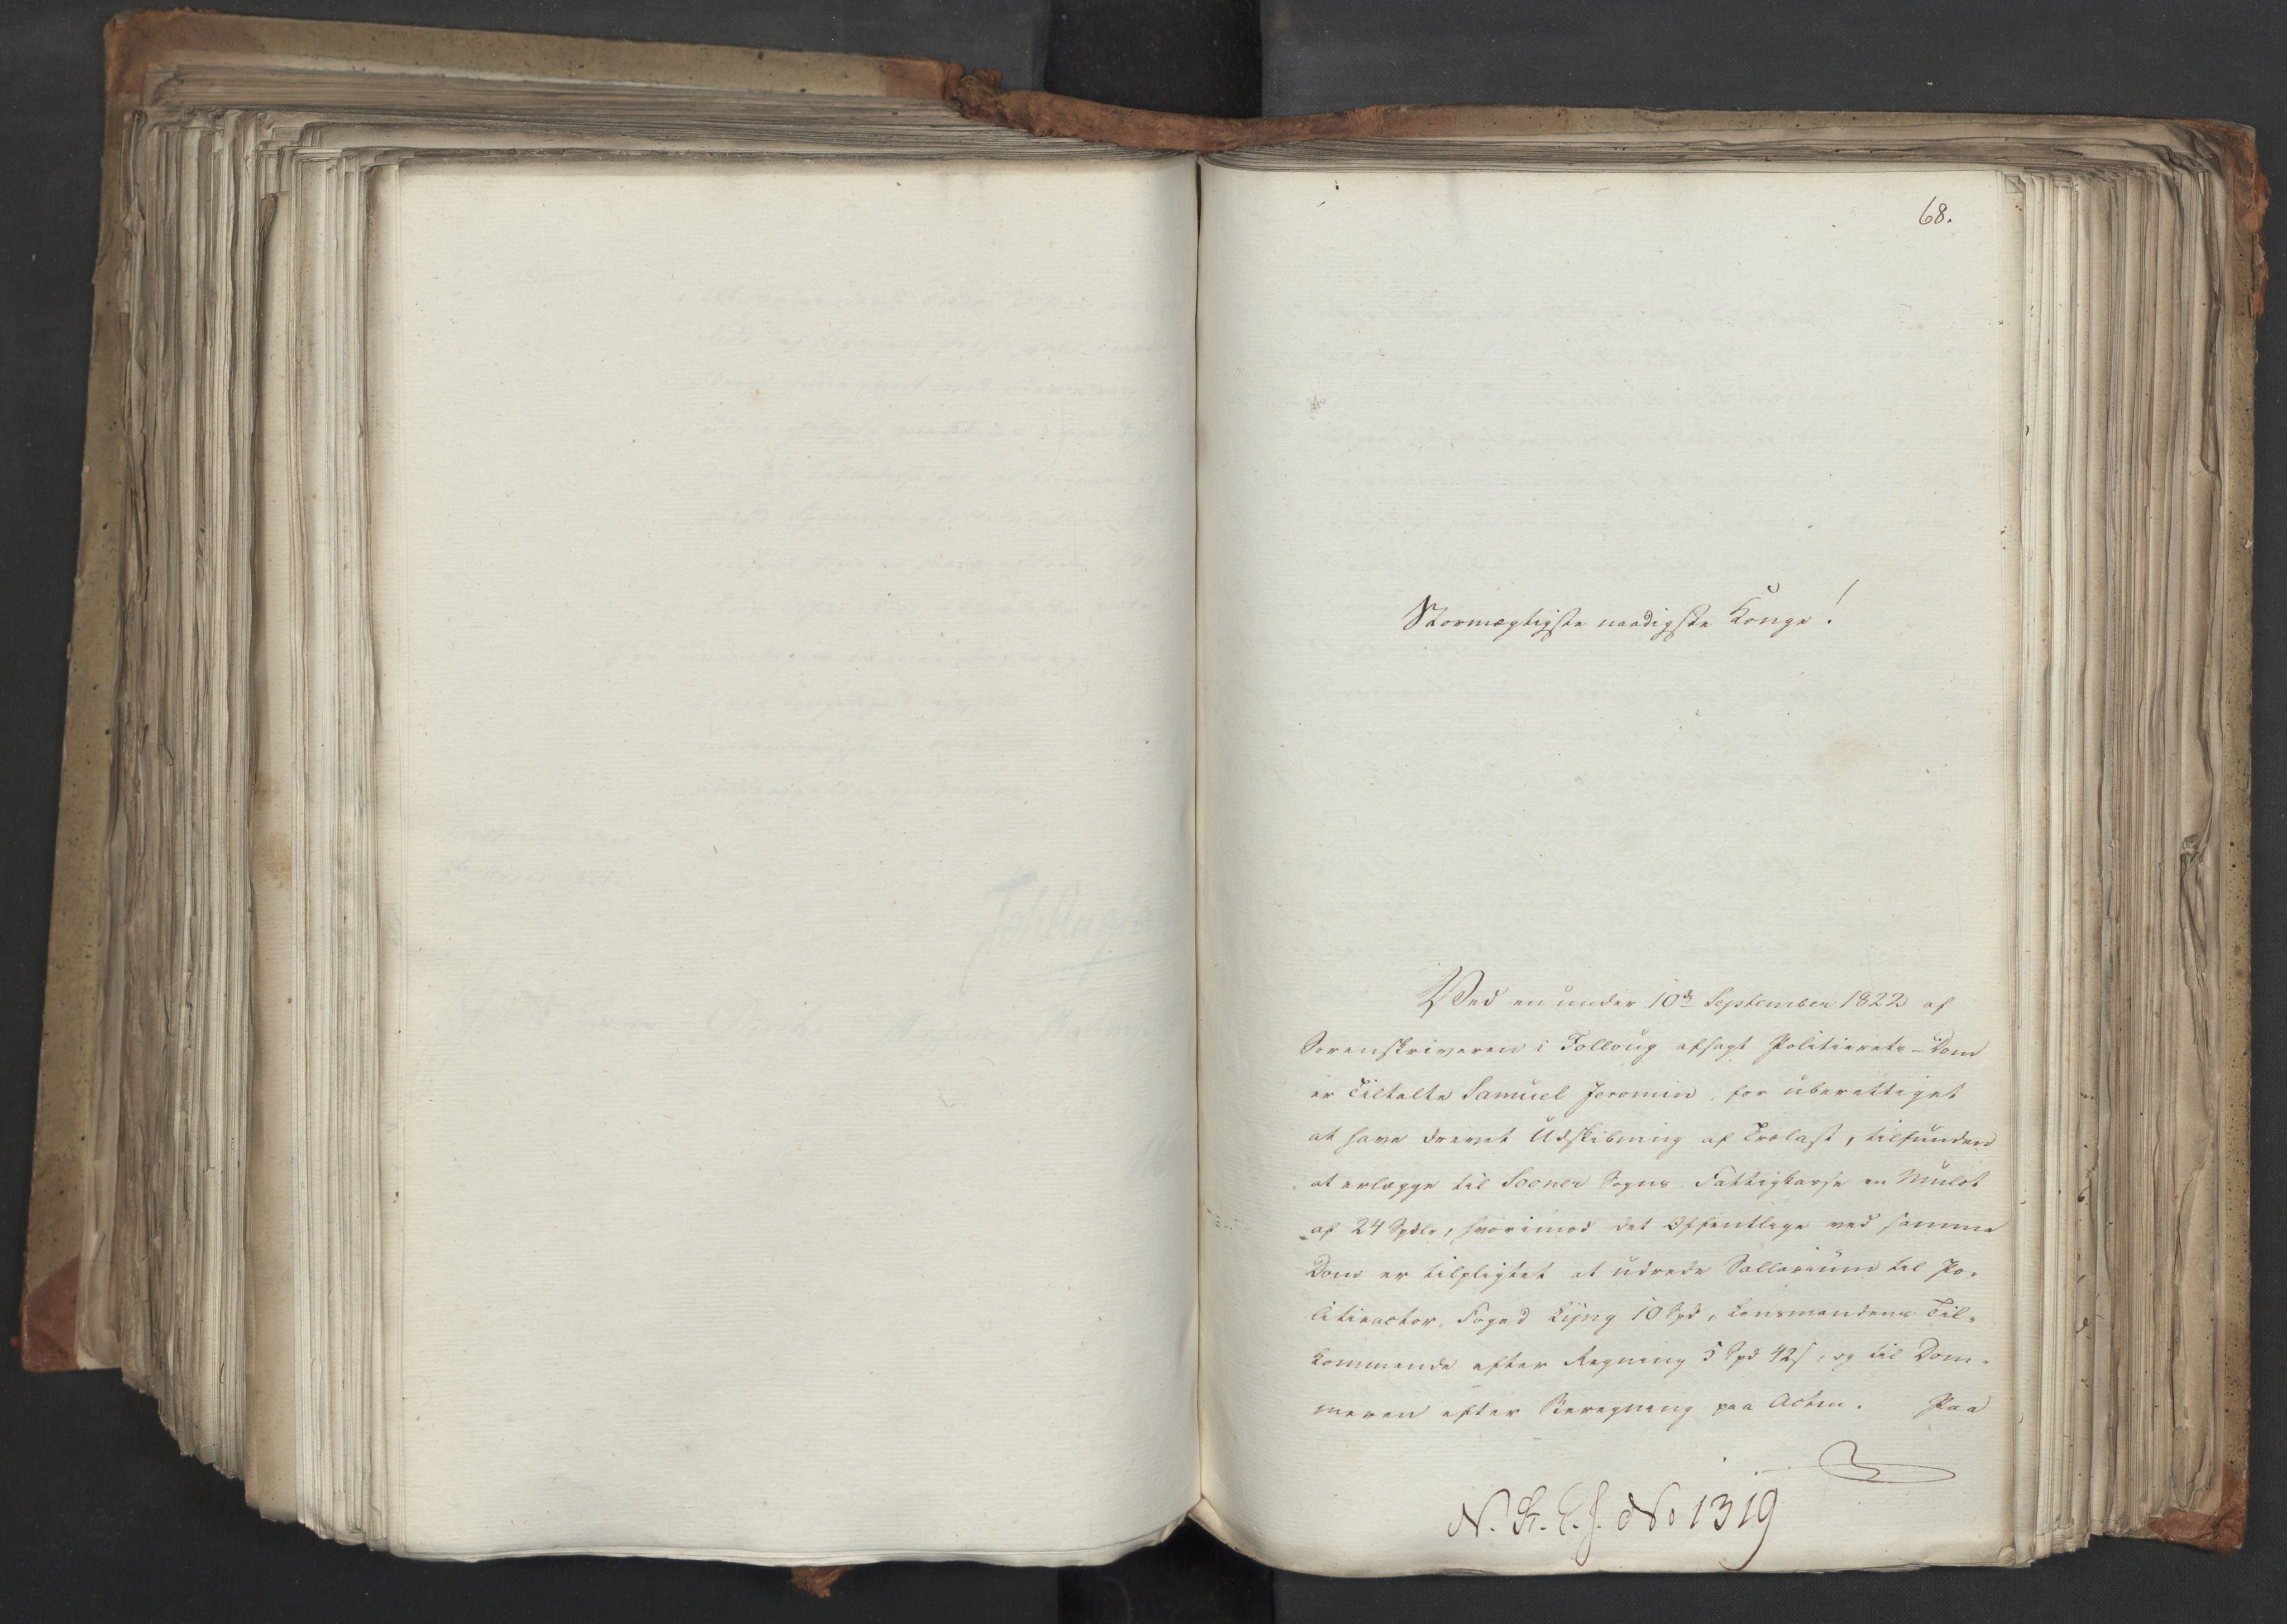 68.
Stormægtigste naadigste Konge!
Ved en under 10de September 1822 af
Sorenskriveren i Folloug afsagt Politierets-Dom
er Tiltalte Samuel Joromin, for uberettiget
at have drevet Udskibning af Trælast, tilfunden
at erlægge til Sooner Sogns Fattigkasse en Mulct
af 24 Spdlr, hvorimod det Offentlige ved samme
Dom er tilpligtet at udrede Sallarium til Po-
litieactor, Foged Lÿng 10 Spd, Lensmandens Til-
kommende efter Regning 5 Spd 42 s, og til Dom-
meren efter Beregning paa Acten. Paa
N. St. E. J. No 1319